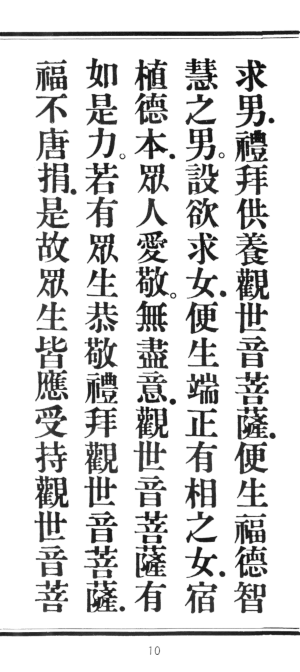 求男.禮拜供養觀世音菩薩.便生福德智
慧之男。設欲求女.便生端正有相之女.宿
植德本.眾人愛敬。無盡意.觀世音菩薩有
如是力。若有眾生恭敬禮拜觀世音菩薩.
福不唐捐.是故眾生皆應受持觀世音菩
10